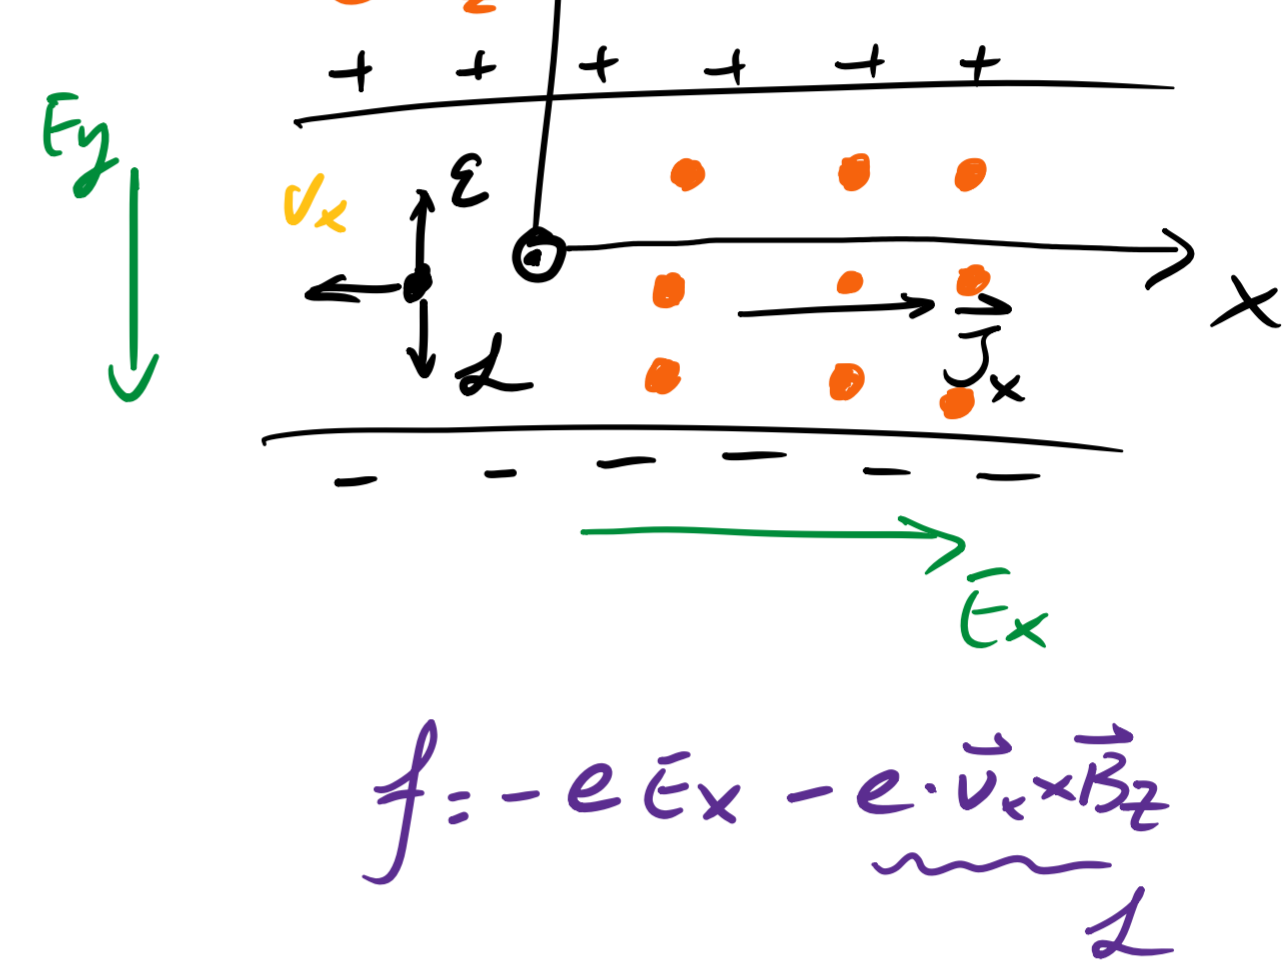 + + + + + +
Ey
vx
ℰ
x
ℒ
J⃗x
- - - - - -
Ex
f = - e Ex - e · v⃗x × B⃗z
ℒ